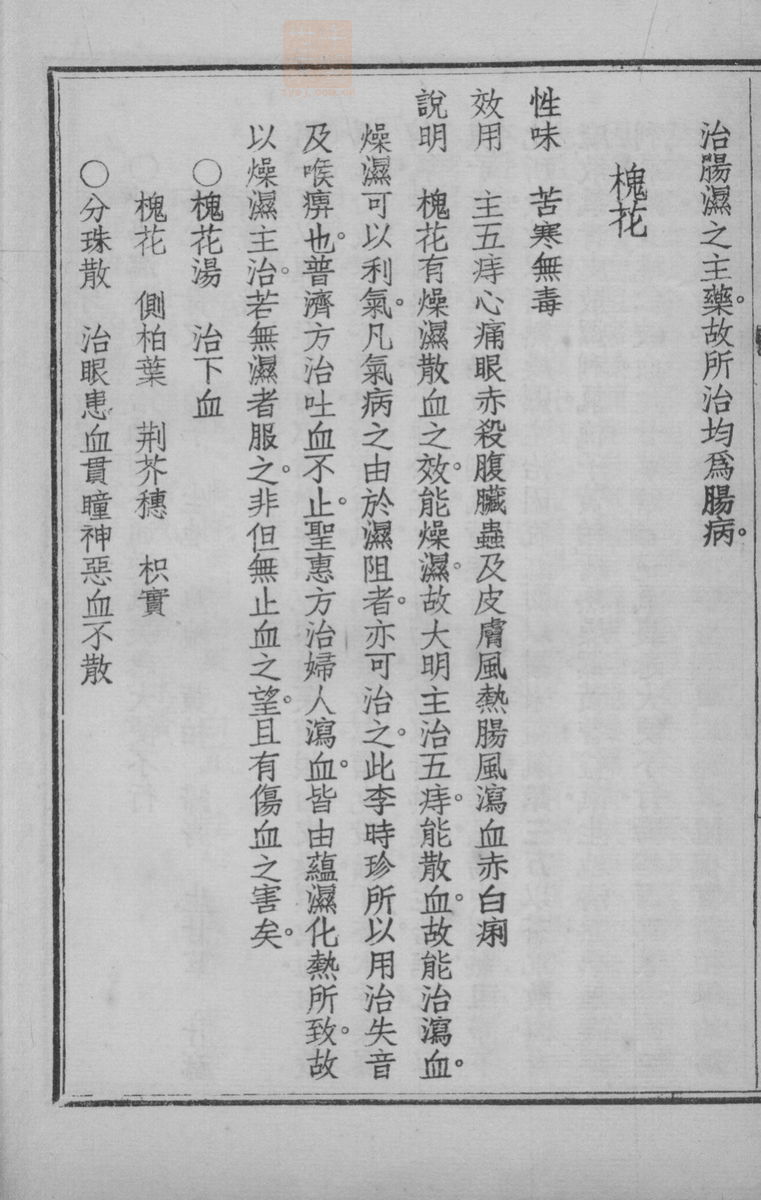 治腸濕之主藥。故所治均爲腸病。
槐花
性味　苦寒無毒
效用　主五痔心痛眼赤殺腹臟蟲及皮膚風熱腸風瀉血赤白痢
說明　槐花有燥濕散血之效。能燥濕。故大明主治五痔。能散血。故能治瀉血。
燥濕可以利氣。凡氣病之由於濕阻者。亦可治之。此李時珍所以用治失音
及喉痹也。普濟方治吐血不止。聖惠方治婦人瀉血。皆由蘊濕化熱所致。故
以燥濕主治。若無濕者服之。非但無止血之望。且有傷血之害矣。
○槐花湯　治下血
槐花　側柏葉　荆芥穗　枳實
○分珠散　治眼患血貫瞳神惡血不散